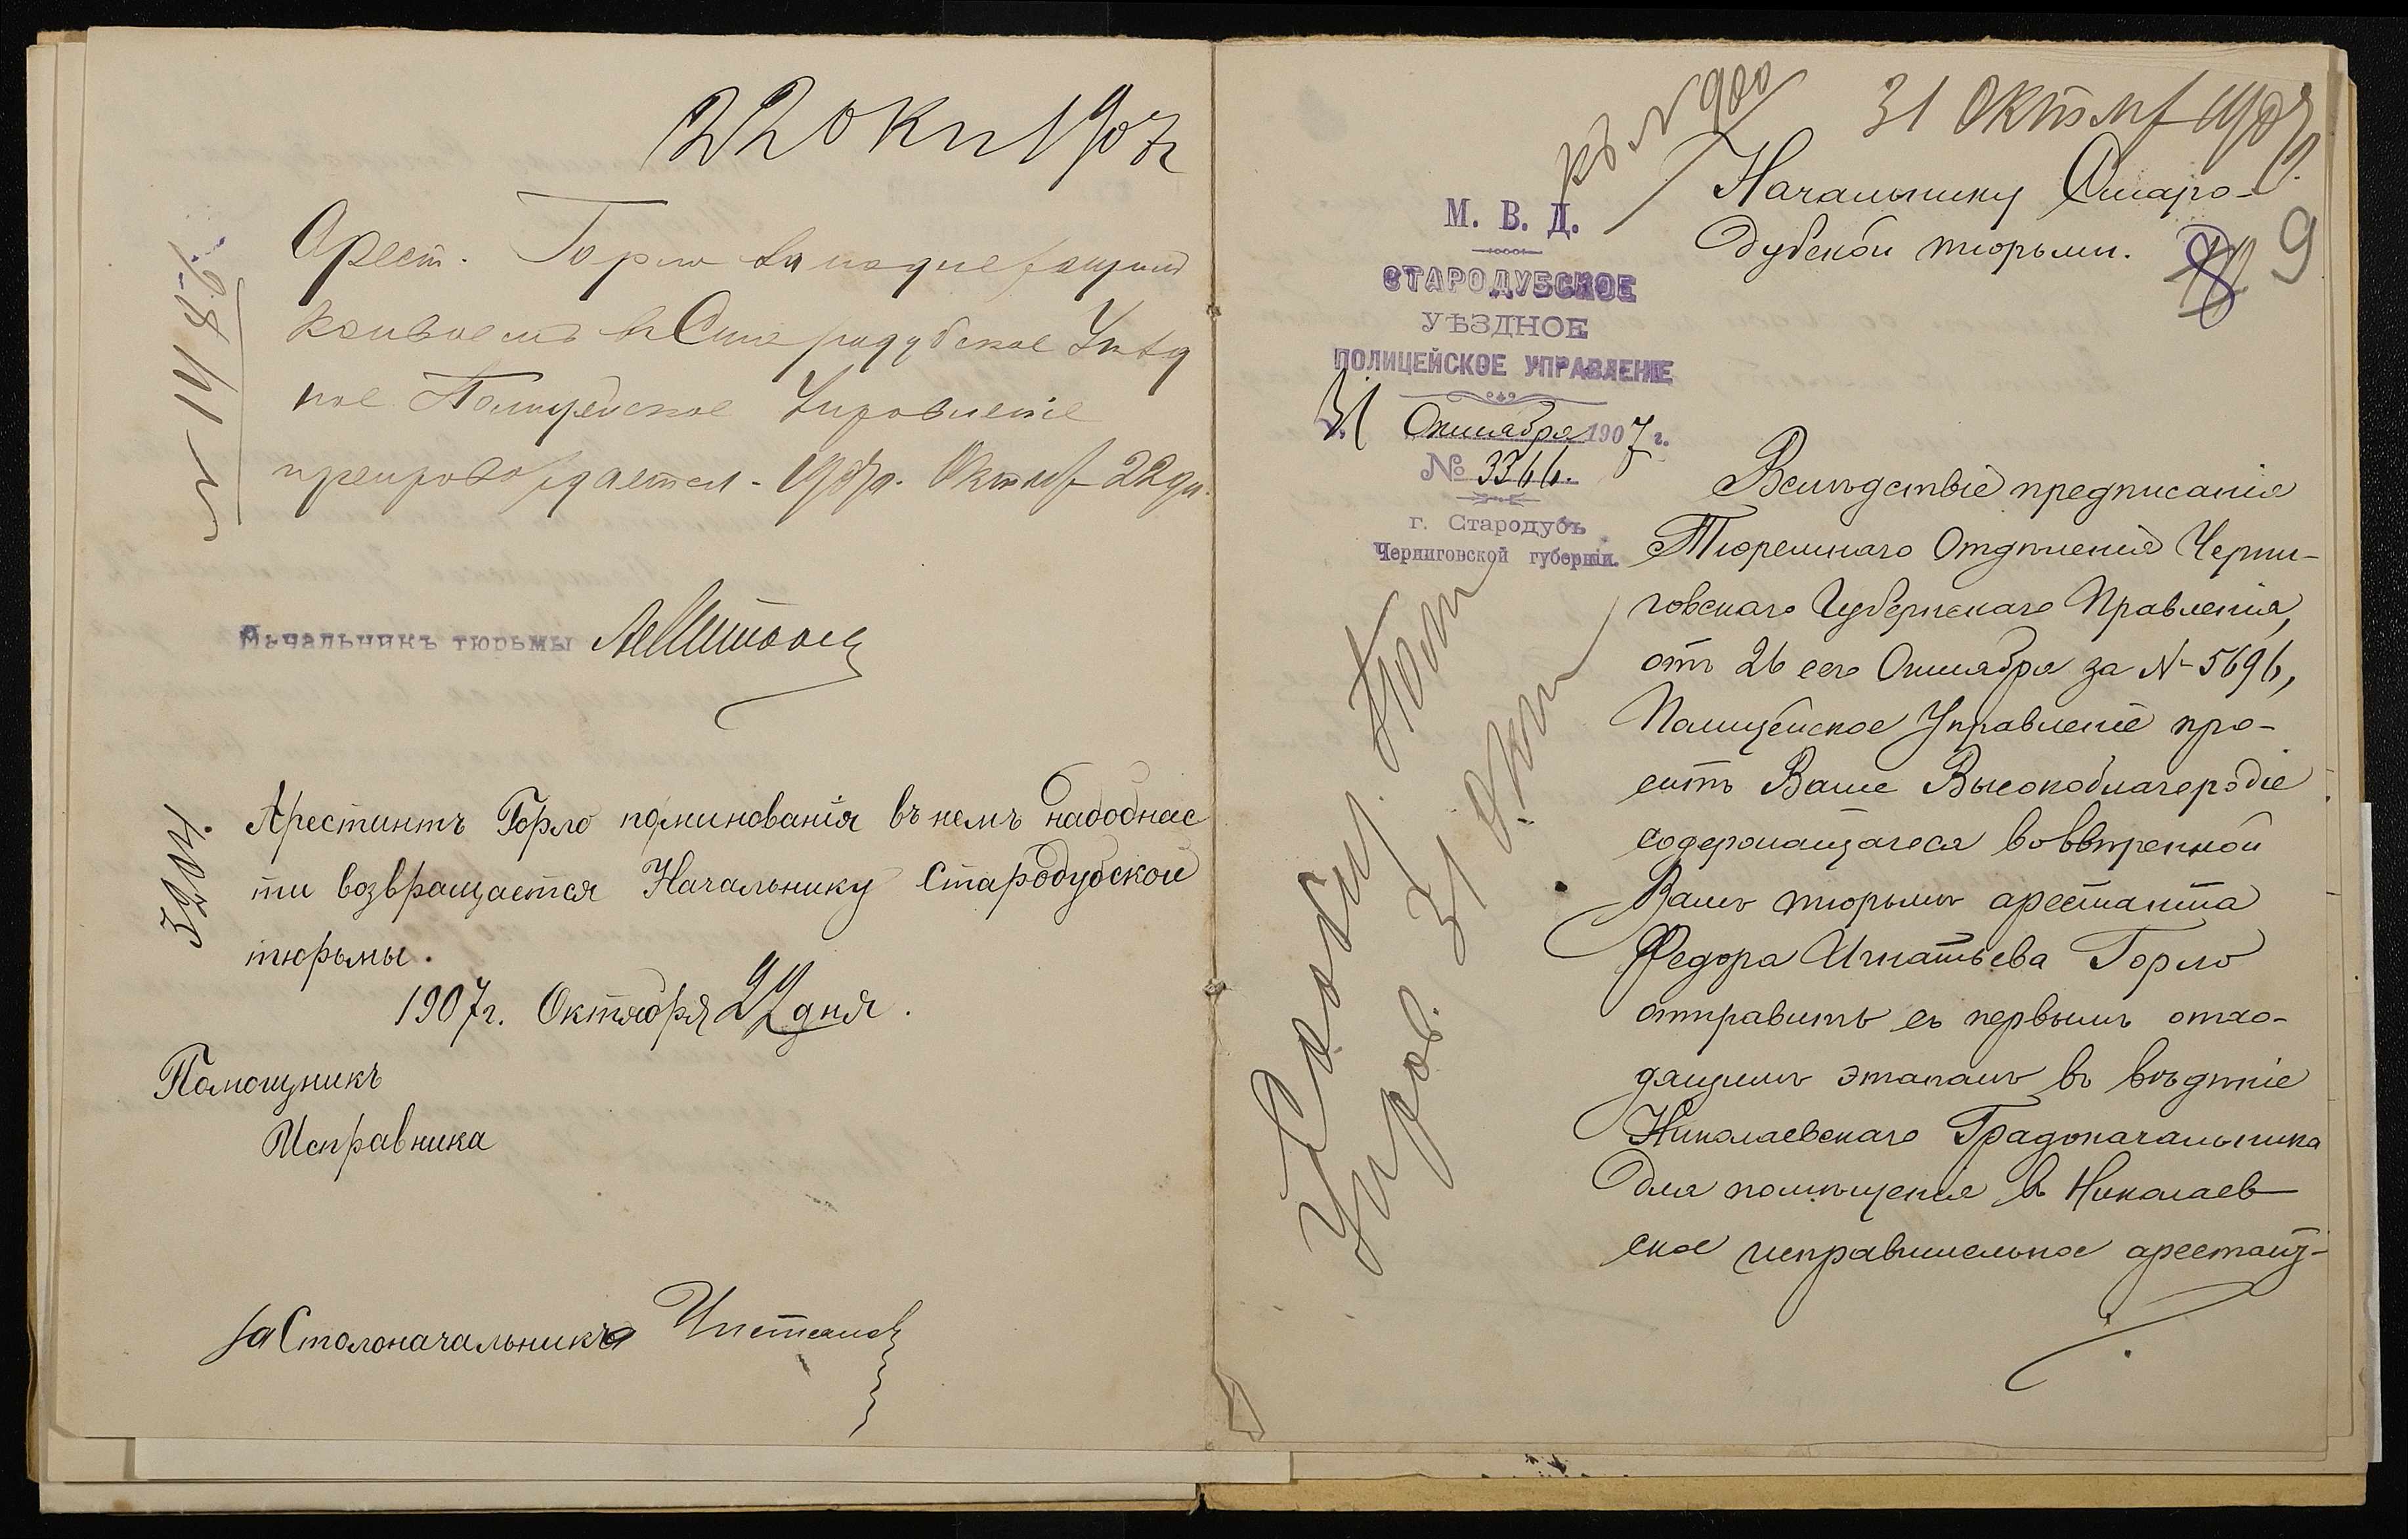 22 Окт 1907 г
№ 1485
Арест. Горло за надлежащим
конвоемъ в Стародубское Уѣзд
ное Полицейское Управленіе
препровождается. 1907 г. Октяб 22 дн.
Начальникъ тюрьмы
3204.
Арестантъ Горло поминованія въ немъ надобнас
ти возвращается Начальнику Стародубской
тюрьмы.
1907 г. Октября 22 дня.
Помощникъ
Исправника
За Столоначальника
вх № 900
31 Октяб 1907 г.
Начальнику Старо-
дубской тюрьмы.
8 9
М. В. Д.
СТАРОДУБСКОЕ
УѢЗДНОЕ
ПОЛИЦЕЙСКОЕ УПРАВЛЕНІЕ
31 Октября 1907 г.
№ 3366.
г. Стародубъ
Черниговской губерніи.
Вслѣдствіе предписанія
Тюремнаго Отдѣленія Черни-
говскаго Губернскаго Правленія,
отъ 26 сего Октября за № 5696,
Полицейское Управленіе про-
ситъ Ваше Высокоблагородіе
содержащагося во ввѣренной
Вамъ тюрьмѣ арестанта
Федора Игнатьева Горло
отправить съ первымъ отхо-
дящимъ этапомъ въ вѣдѣніе
Николаевскаго Градоначальника
для помѣщенія въ Николаев-
ское исправительное арестант-
31 Окт